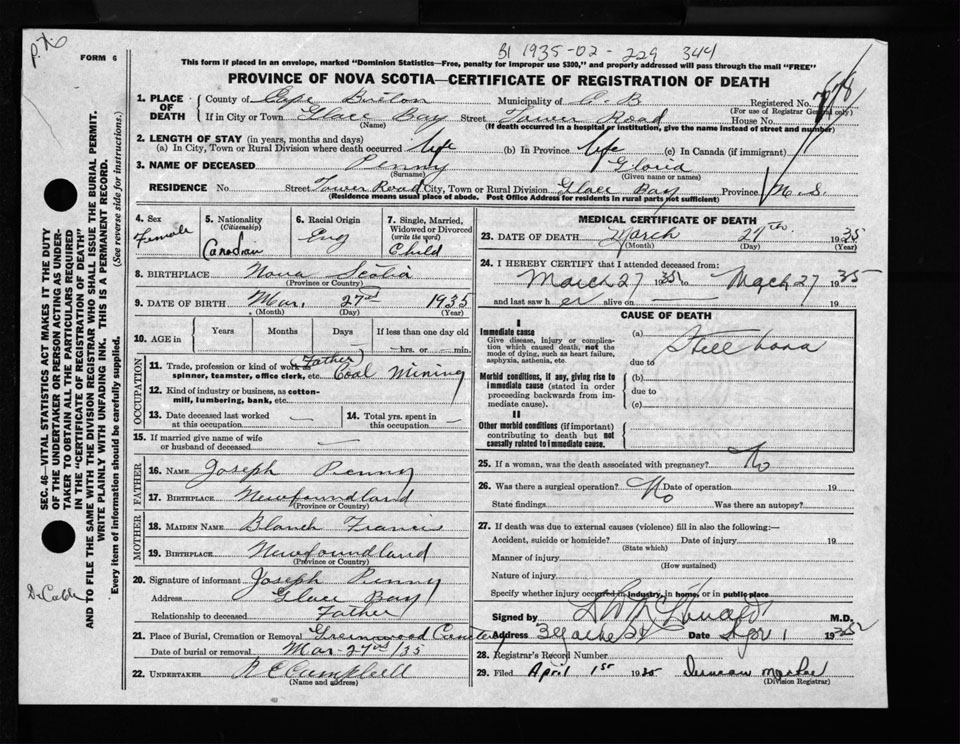 BI 1935-02-229 344
FORM 6
This form if placed in an envelope, marked "Dominion Statistics—Free, penalty for improper use $300," and properly addressed will pass through the mail "FREE"
PROVINCE OF NOVA SCOTIA—CERTIFICATE OF REGISTRATION OF DEATH
SEC. 46—VITAL STATISTICS ACT MAKES IT THE DUTY
OF THE UNDERTAKER OR PERSON ACTING AS UNDER-
TAKER TO OBTAIN ALL THE PARTICULARS REQUIRED
IN THE "CERTIFICATE OF REGISTRATION OF DEATH"
AND TO FILE THE SAME WITH THE DIVISION REGISTRAR WHO SHALL ISSUE THE BURIAL PERMIT.
WRITE PLAINLY WITH UNFADING INK. THIS IS A PERMANENT RECORD.
Every item of information should be carefully supplied. (See reverse side for instructions.)
1. PLACE OF DEATH
County of Cape Breton Municipality of C-B Registered No.
(For use of Registrar General only)
If in City or Town Glace Bay Street Town Road House No.
(Name) (If death occurred in a hospital or institution, give the name instead of street and number)
2. LENGTH OF STAY (in years, months and days)
(a) In City, Town or Rural Division where death occurred life (b) In Province life (c) In Canada (if immigrant)
3. NAME OF DECEASED Penny Gloria
(Surname) (Given name or names)
RESIDENCE No. Street Town Road City, Town or Rural Division Glace Bay Province N.S.
(Residence means usual place of abode. Post Office Address for residents in rural parts not sufficient)
4. Sex Female
5. Nationality (Citizenship) Canadian
6. Racial Origin Eng
7. Single, Married, Widowed or Divorced (write the word) Child
8. BIRTHPLACE Nova Scotia
(Province or Country)
9. DATE OF BIRTH Mar. 27 1935
(Month) (Day) (Year)
10. AGE in Years Months Days If less than one day old
— hrs. or — min.
OCCUPATION
11. Trade, profession or kind of work as spinner, teamster, office clerk, etc. (Father) Coal Mining
12. Kind of industry or business, as cotton-mill, lumbering, bank, etc.
13. Date deceased last worked at this occupation —
14. Total yrs. spent in this occupation —
15. If married give name of wife or husband of deceased —
FATHER
16. NAME Joseph Penny
17. BIRTHPLACE Newfoundland
(Province or Country)
MOTHER
18. MAIDEN NAME Blanch Francis
19. BIRTHPLACE Newfoundland
(Province or Country)
20. Signature of informant Joseph Penny
Address Glace Bay
Relationship to deceased Father
21. Place of Burial, Cremation or Removal Greenwood Cemetery
Date of burial or removal Mar-27/35
22. UNDERTAKER R E Campbell
(Name and address)
MEDICAL CERTIFICATE OF DEATH
23. DATE OF DEATH March 27th 1935
(Month) (Day) (Year)
24. I HEREBY CERTIFY that I attended deceased from:
March 27 1935 to March 27 1935
and last saw her alive on — 19
CAUSE OF DEATH
I
Immediate cause
Give disease, injury or complication which caused death, not the mode of dying, such as heart failure, asphyxia, asthenia, etc.
(a) Still born
due to
Morbid conditions, if any, giving rise to immediate cause (stated in order proceeding backwards from immediate cause).
(b)
due to
(c)
II
Other morbid conditions (if important) contributing to death but not causally related to immediate cause.
25. If a woman, was the death associated with pregnancy? No
26. Was there a surgical operation? No Date of operation 19
State findings Was there an autopsy?
27. If death was due to external causes (violence) fill in also the following:—
Accident, suicide or homicide? Date of injury 19
(State which)
Manner of injury
(How sustained)
Nature of injury
Specify whether injury occurred in industry, in home, or in public place
Signed by M.D.
Address Date 1935
28. Registrar's Record Number
29. Filed April 1st 1935
(Division Registrar)